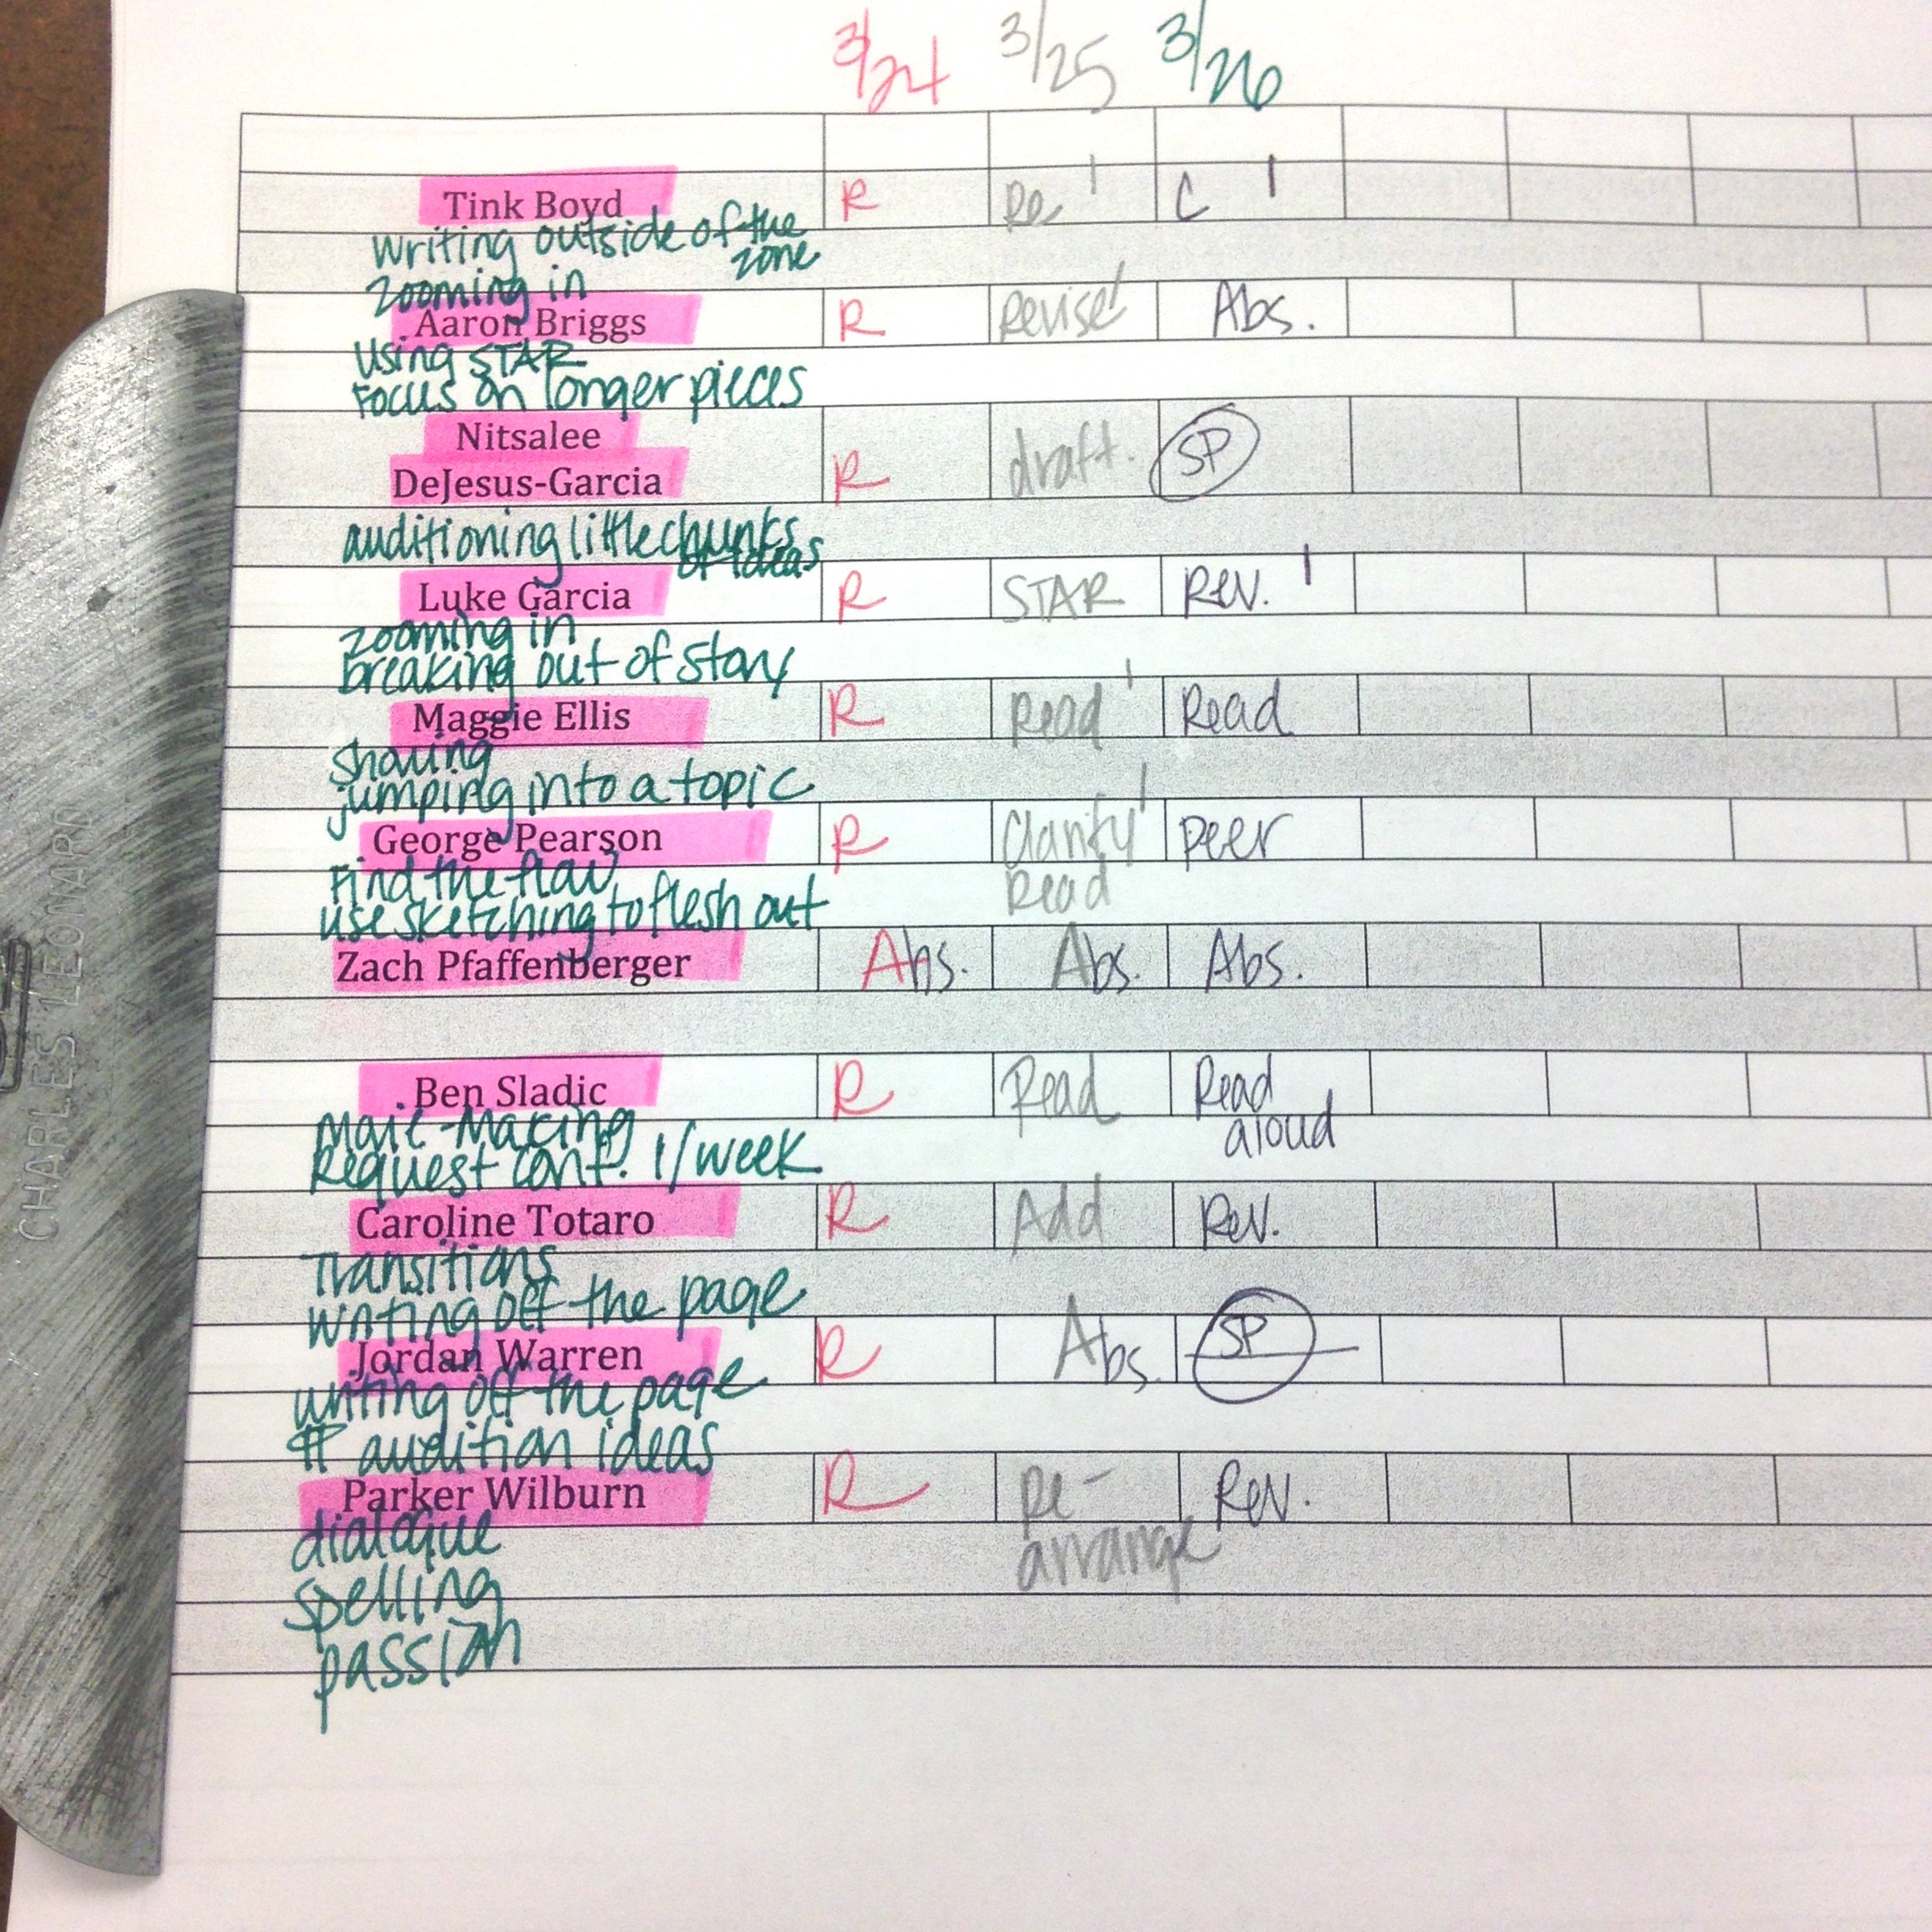 3/24 3/25 3/26
Tink Boyd R Re 1 C 1
writing outside of the
zone
zooming in
Aaron Briggs R Revise 1 Abs.
using STAR
Focus on longer pieces
Nitsalee
DeJesus-Garcia R draft. SP
auditioning little chunks
of ideas
Luke Garcia R STAR Rev. 1
zooming in
breaking out of story
Maggie Ellis R Read 1 Read
sharing
jumping into a topic
George Pearson R Clarify 1 peer
Read
Find the flow
use sketching to flesh out
Zach Pfaffenberger Abs. Abs. Abs.
Ben Sladic R Read Read
aloud
Request conf. 1/week
Caroline Totaro R Add Rev.
Transitions
writing off the page
Jordan Warren R Abs. SP
writing off the page
audition ideas
Parker Wilburn R Re- Rev.
arrange
dialogue
spelling
passion
CHARLES LEONARD